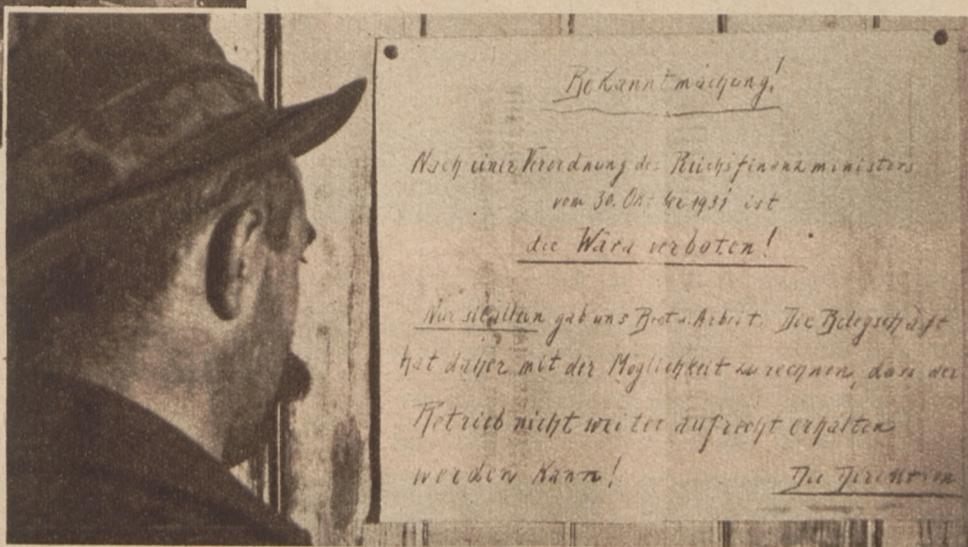 Bekanntmachung!
Nach einer Verordnung des Reichsfinanzministers
vom 30. Oktober 1931 ist
die Wära verboten!
Nur sie allein gab uns Brot u. Arbeit. Die Belegschaft
hat daher mit der Möglichkeit zu rechnen, dass der
Betrieb nicht weiter aufrecht erhalten
werden kann!
Die Direktion